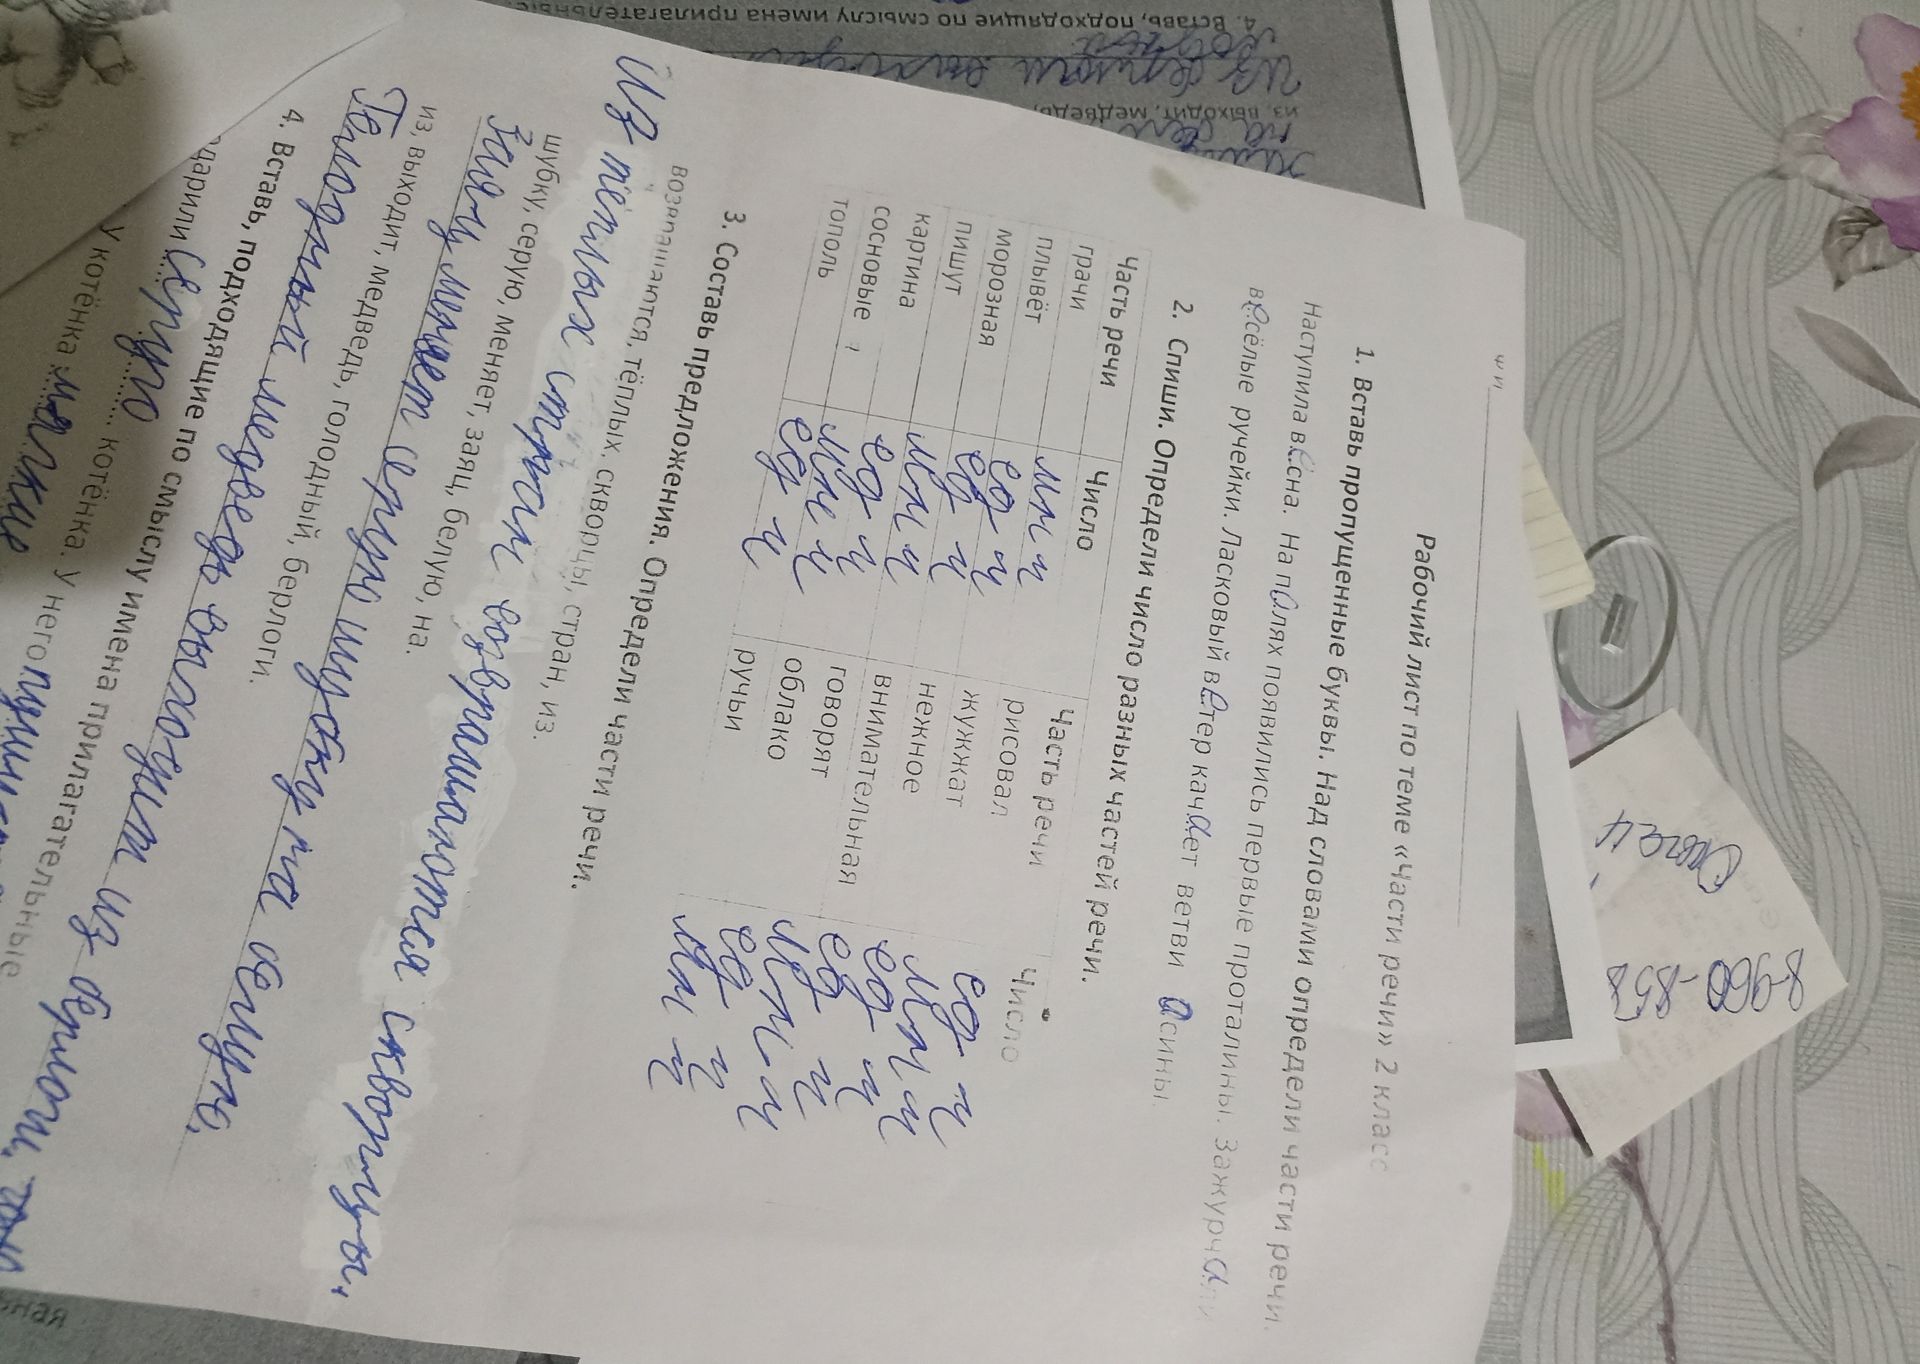 Ф И
Рабочий лист по теме «Части речи» 2 класс
1. Вставь пропущенные буквы. Над словами определи части речи.
Наступила весна. На полях появились первые проталины. Зажурчали
весёлые ручейки. Ласковый ветер качает ветви осины.
2. Спиши. Определи число разных частей речи.
Часть речи Число Часть речи Число
грачи мн ч рисовал ед ч
плывёт ед ч жужжат мн ч
морозная ед ч нежное ед ч
пишут мн ч внимательная ед ч
картина ед ч говорят мн ч
сосновые мн ч облако ед ч
тополь ед ч ручьи мн ч
3. Составь предложения. Определи части речи.
возвращаются, тёплых, скворцы, стран, из.
Из тёплых стран возвращаются скворцы.
шубку, серую, меняет, заяц, белую, на.
Заяц меняет серую шубку на белую.
из, выходит, медведь, голодный, берлоги.
Голодный медведь выходит из берлоги.
4. Вставь, подходящие по смыслу имена прилагательные
дарили серую котёнка. У него
У котёнка мягкие
4. Вставь, подходящие по смыслу имена прилагательные
из, выходит, медведь,
Из берлоги выходит
8-960-858
ьная